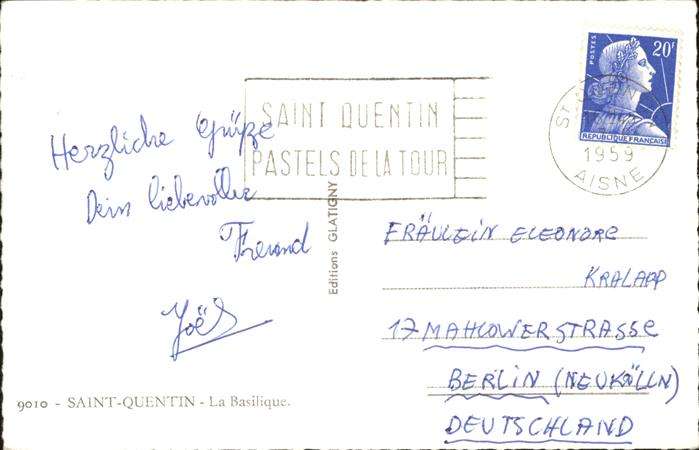 POSTES
20F
REPUBLIQUE FRANÇAISE
ST QUENTIN
1959
AISNE
SAINT QUENTIN
PASTELS DE LA TOUR
Herzliche Grüße
Dein liebevoller
Freund
Joël
Editions GLATIGNY
FRÄULEIN ELEONORE
KRALAPP
17 MAHLOWERSTRASSE
BERLIN (NEUKÖLLN)
DEUTSCHLAND
9010 - SAINT-QUENTIN - La Basilique.